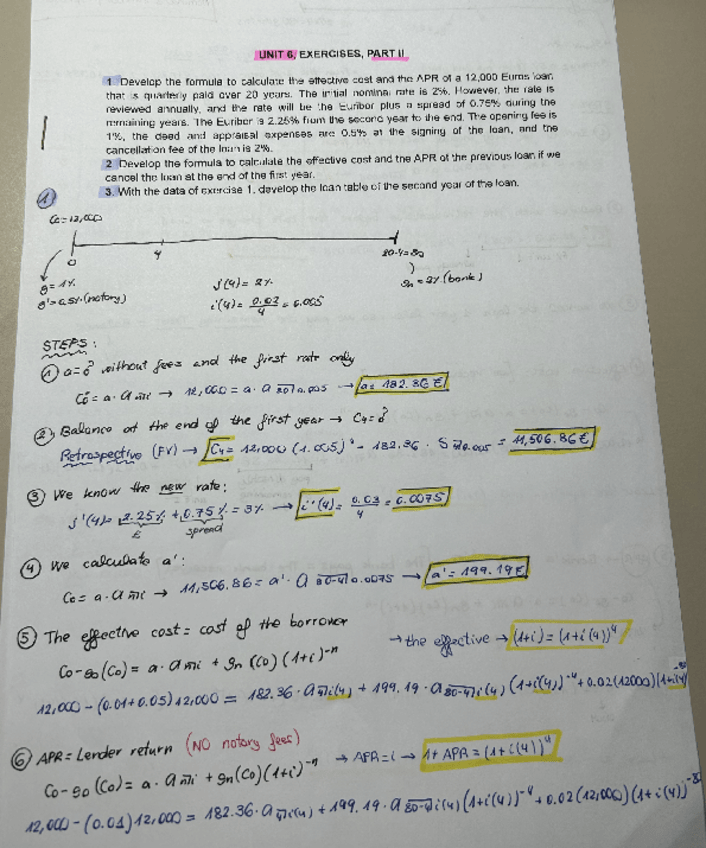 UNIT 6, EXERCISES, PART II
1. Develop the formula to calculate the effective cost and the APR of a 12,000 Euros loan
that is quarterly paid over 20 years. The initial nominal rate is 2%. However, the rate is
reviewed annually, and the rate will be the Euribor plus a spread of 0.75% during the
remaining years. The Euribor is 2.25% from the second year to the end. The opening fee is
1%, the deed and appraisal expenses are 0.5% at the signing of the loan, and the
cancellation fee of the loan is 2%.
2. Develop the formula to calculate the effective cost and the APR of the previous loan if we
cancel the loan at the end of the first year.
3. With the data of exercise 1, develop the loan table of the second year of the loan.
1
C₀=12,000
0 4 20·4=80
g=1%
g'=0.5% (notary)
j(4)= 2%
i(4)= 0.02/4 = 0.005
gn=2% (bank)
STEPS:
① a=? without fees and the first rate only
C₀ = a·a n̅i → 12,000 = a·a 8̅0̅ 0.005 → a= 182.36 €
② Balance at the end of the first year → C₄=?
Retrospective (FV) → C₄= 12,000 (1.005)⁴ - 182.36 · S 4̅ 0.005 = 11,506.86 €
③ We know the new rate:
j'(4)= 2.25% + 0.75% = 3% → i'(4)= 0.03/4 = 0.0075
E spread
④ We calculate a':
C₀= a·a n̅i → 11,506.86 = a'·a 8̅0̅-̅4̅ 0.0075 → a'= 199.19 €
⑤ The effective cost = cost of the borrower → the effective → (1+i)=(1+i(4))⁴
C₀-g₀(C₀)= a·a n̅i + gn(C₀)(1+i)⁻ⁿ
12,000-(0.01+0.05)12,000 = 182.36·a 4̅ i(4) + 199.19·a 8̅0̅-̅4̅ i(4) (1+i(4))⁻⁴ + 0.02(12000)(1+i(4))⁻⁸⁰
⑥ APR = Lender return (NO notary fees) → APR=i → 1+APR=(1+i(4))⁴
C₀-g₀(C₀)= a·a n̅i + gn(C₀)(1+i)⁻ⁿ
12,000-(0.01)12,000 = 182.36·a 4̅ i(4) + 199.19·a 8̅0̅-̅4̅ i(4) (1+i(4))⁻⁴ + 0.02(12,000)(1+i(4))⁻⁸⁰